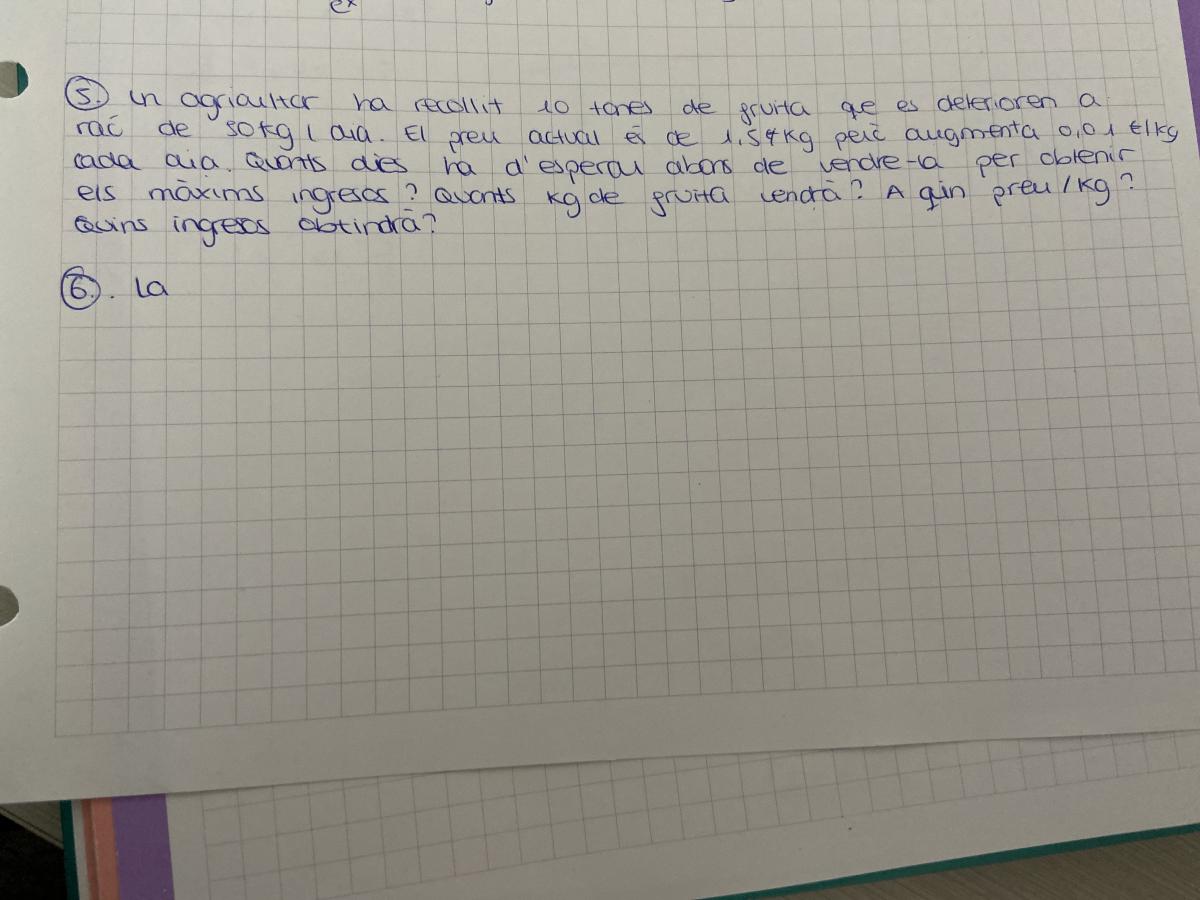 5. Un agricultor ha recollit 10 tones de fruita que es deterioren a
raó de 50kg / dia. El preu actual és de 1,5€/kg però augmenta 0,01 €/kg
cada dia. Quants dies ha d'esperar abans de vendre-la per obtenir
els màxims ingresos? Quants kg de fruita vendrà? A quin preu/kg?
Quins ingresos obtindrà?
6. La